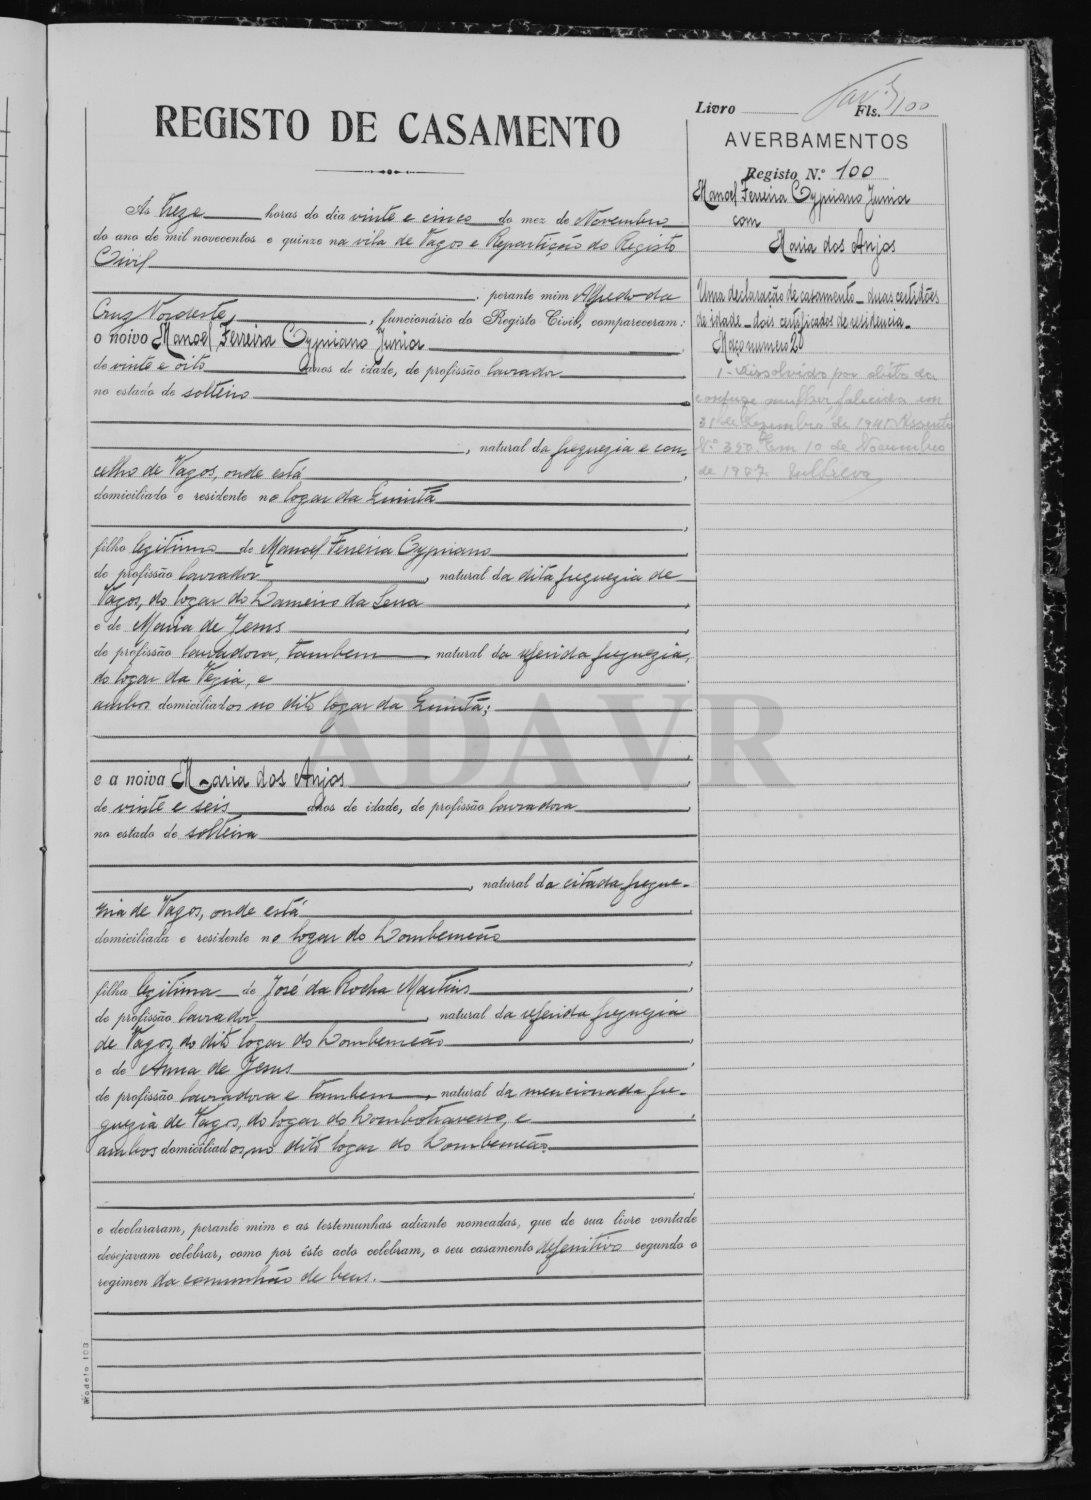 Livro Fls. 100
REGISTO DE CASAMENTO
AVERBAMENTOS
Registo N.º 100
Manoel Ferreira Cypriano Junior
com
Maria dos Anjos
Uma declaração de casamento _ duas certidões
de idade _ dois certificados de residencia _
Maço numero 20
1 - Dissolvido por obito da
conjuge mulher falecida em
31 de Dezembro de 1941. Assento
N.º 350. Em 10 de Novembro
de
As treze horas do dia vinte e cinco do mez de Novembro
do ano de mil novecentos e quinze na vila de Vagos e Repartição do Registo
Civil
, perante mim Alfredo da
Cruz Nordeste, , funcionário do Registo Civil, compareceram:
o noivo Manoel Ferreira Cypriano Junior
de vinte e oito anos de idade, de profissão lavrador
no estado de solteiro
, natural da freguezia e con-
celho de Vagos, onde está
domiciliado e residente no logar da Quintã
filho legitimo de Manoel Ferreira Cypriano
de profissão lavrador , natural da dita freguezia de
Vagos, do logar do Lameiro da Serra
e de Maria de Jesus
de profissão lavradora, tambem natural da referida freguezia,
do logar da Vezia, e
ambos domiciliados no dito logar da Quintã;
ADAVR
e a noiva Maria dos Anjos
de vinte e seis anos de idade, de profissão lavradora
no estado de solteira
, natural da citada fregue-
zia de Vagos, onde está
domiciliada e residente no logar do Lombomeão
filha legitima de José da Rocha Martins
de profissão lavrador , natural da referida freguezia
de Vagos, do dito logar do Lombomeão
e de Anna de Jesus
de profissão lavradora e tambem , natural da mencionada fre-
guezia de Vagos, do logar do e
ambos domiciliados no dito logar do Lombomeão
e declararam, perante mim e as testemunhas adiante nomeadas, que de sua livre vontade
desejavam celebrar, como por êste acto celebram, o seu casamento defenitivo segundo o
regimen da comunhão de bens.
Modelo 103